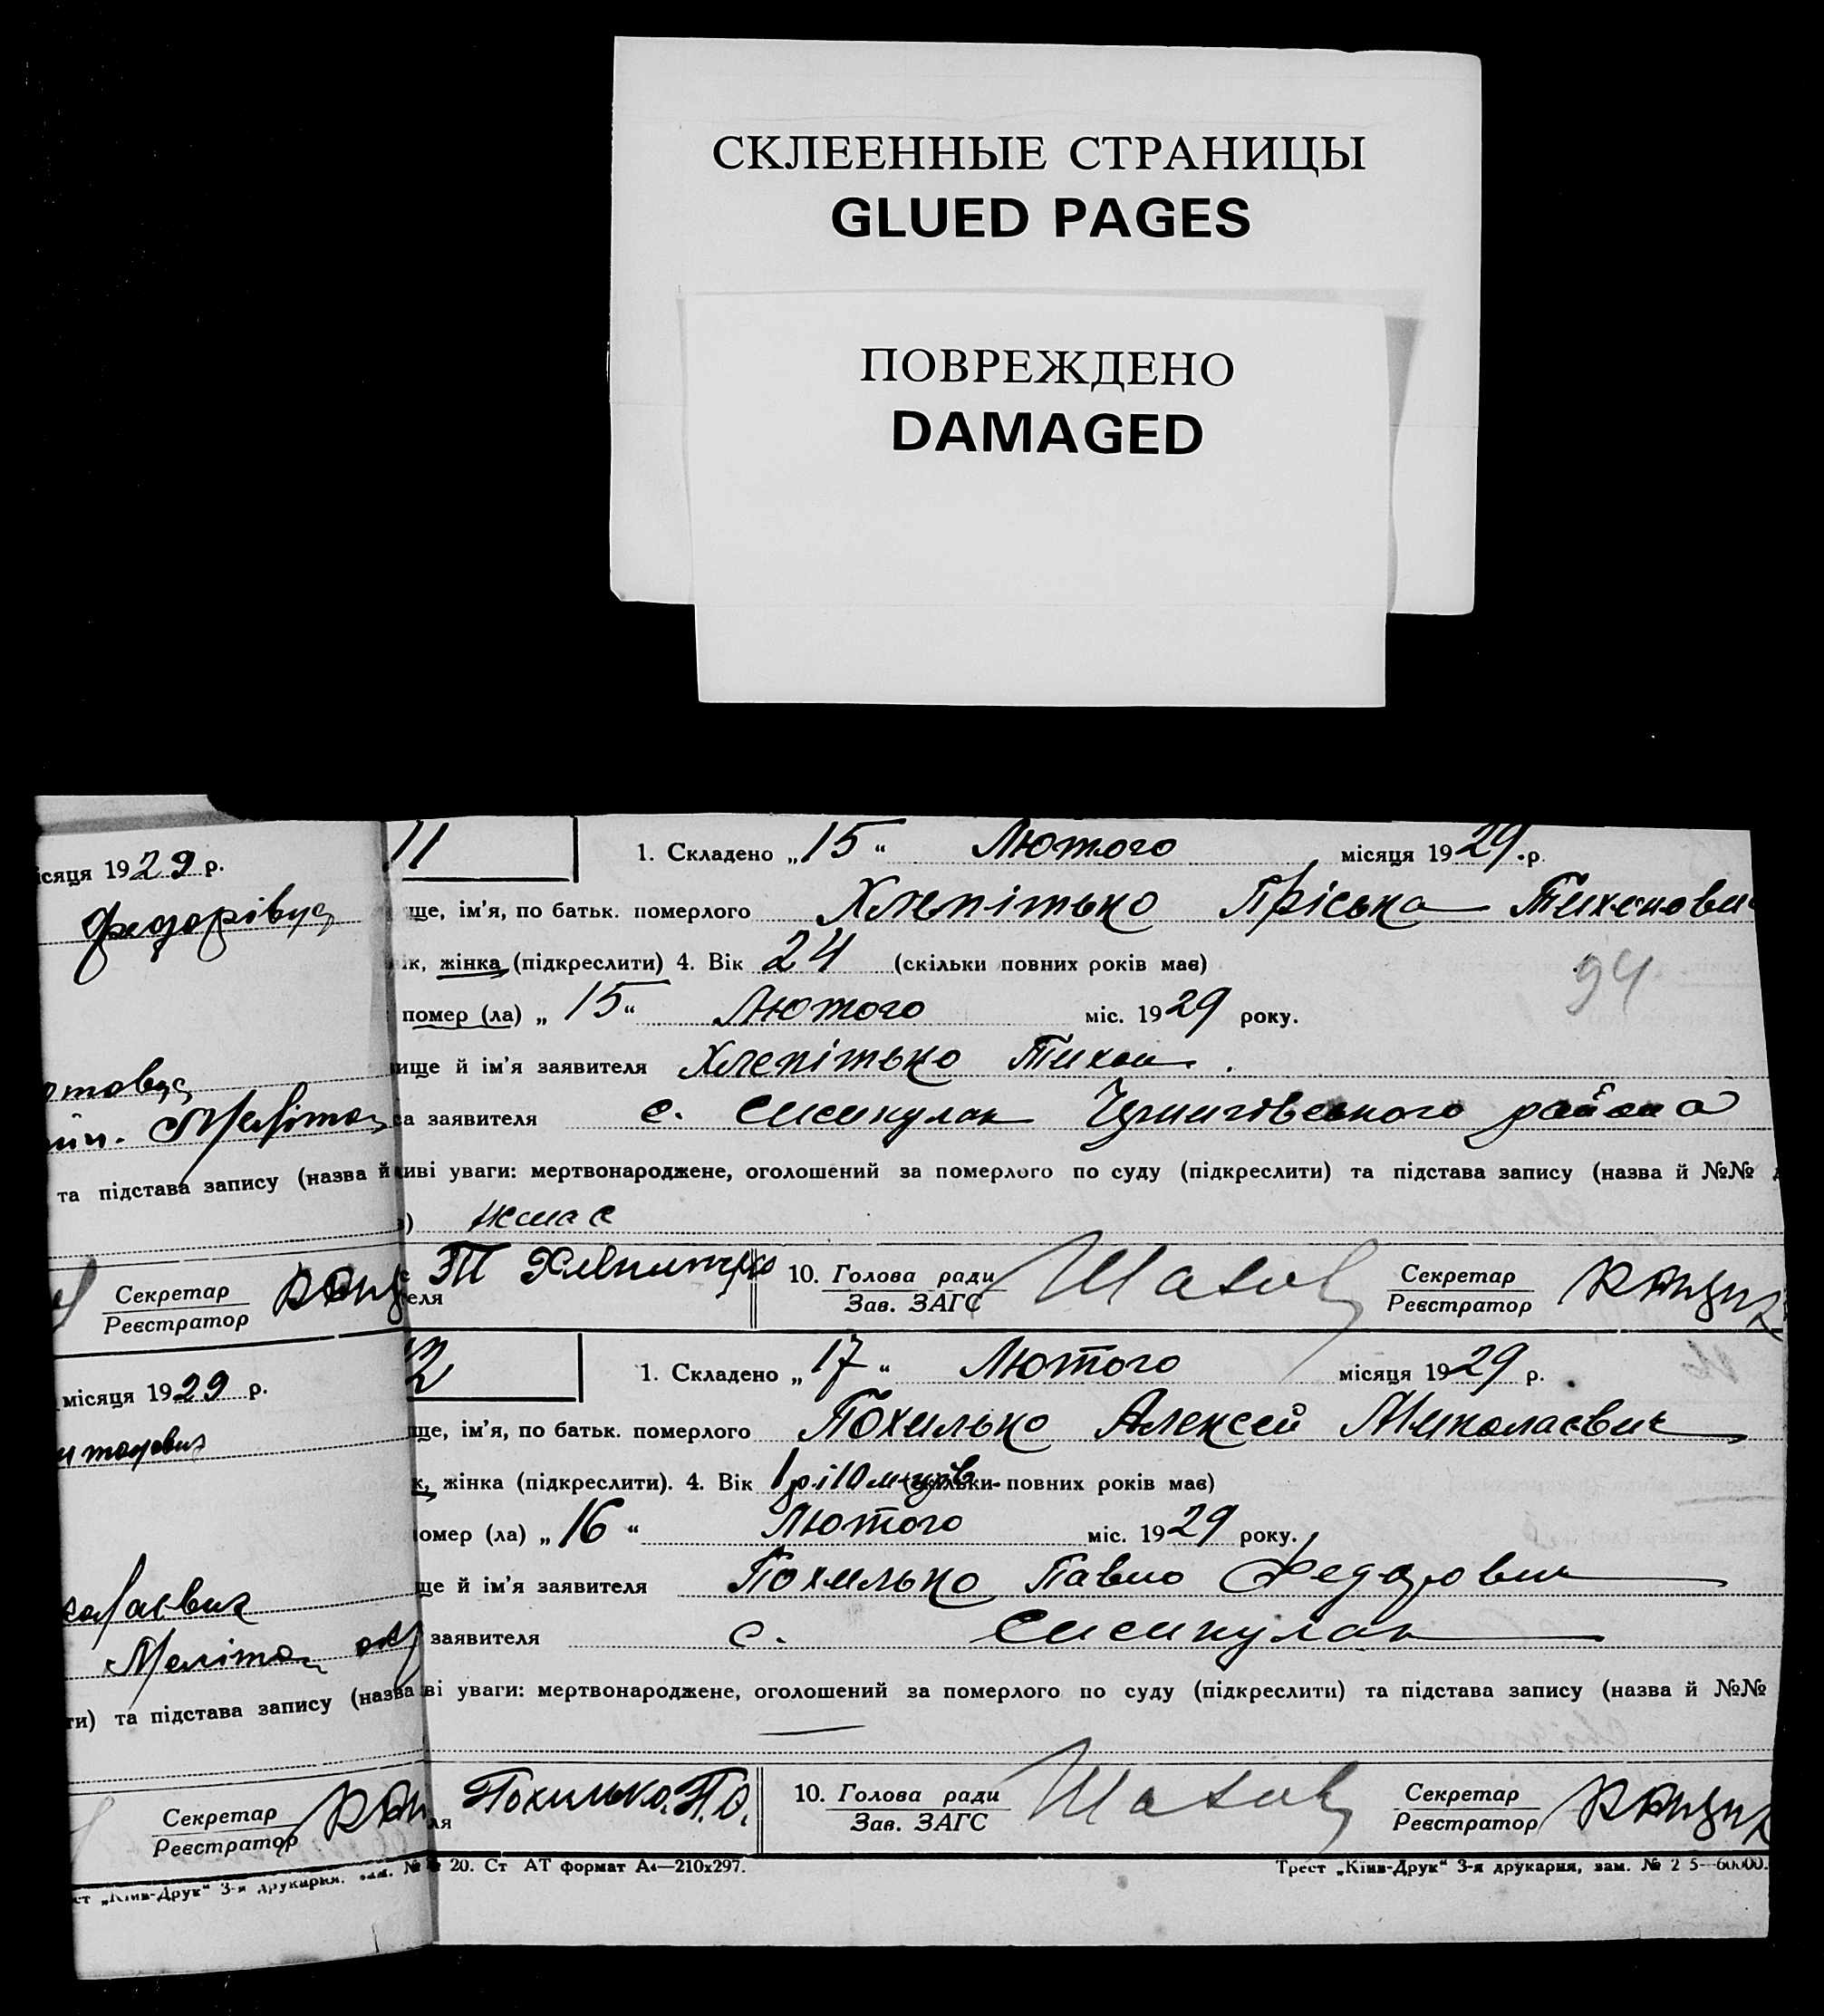 СКЛЕЕННЫЕ СТРАНИЦЫ
GLUED PAGES
ПОВРЕЖДЕНО
DAMAGED
ісяця 1929 р.
та підстава запису (назва й
Секретар
Реєстратор
місяця 1929 р.
Меліто
ти) та підстава запису (назва
Секретар
Реєстратор
ст „Київ-Друк“ 3-я друкарня. зам. №
11
1. Складено „15“ Лютого місяця 1929 р.
ще, ім’я, по батьк. померлого Хлепітько Пріська Тихонови
ік, жінка (підкреслити) 4. Вік 24 (скільки повних років має)
94
помер (ла) „15“ Лютого міс. 1929 року.
ище й ім’я заявителя Хлепітько Тихон.
са заявителя с. Сисикулак района
иві уваги: мертвонароджене, оголошений за померлого по суду (підкреслити) та підстава запису (назва й №№
немає
еля
10. Голова ради
Зав. ЗАГС
Секретар
Реєстратор
12
1. Складено „17“ Лютого місяця 1929 р.
ще, ім’я, по батьк. померлого Похилько Алексей Миколаєвич
к, жінка (підкреслити). 4. Вік 1 р і 10 м-ців (скільки повних років має)
омер (ла) „16“ Лютого міс. 1929 року.
ще й ім’я заявителя Похилько Павло Федорович
заявителя с. Сисикулак
ві уваги: мертвонароджене, оголошений за померлого по суду (підкреслити) та підстава запису (назва й №№
ля Похилько.П.
10. Голова ради
Зав. ЗАГС
Секретар
Реєстратор
20. Ст АТ формат А4—210х297.
Трест „Київ-Друк“ 3-я друкарня, зам. № 2 5—60000.